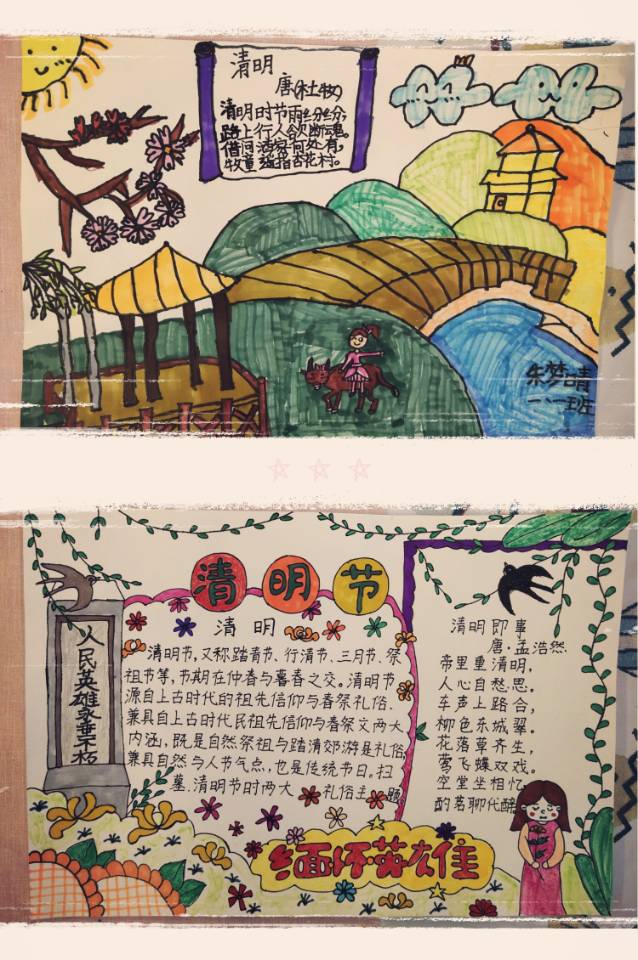 清明
唐(杜牧)
清明时节雨纷纷,
路上行人欲断魂。
借问酒家何处有,
牧童遥指杏花村。
朱梦晴
一、一班
清明节
清明
清明节,又称踏青节、行清节、三月节、祭
祖节等,节期在仲春与暮春之交。清明节
源自上古时代的祖先信仰与春祭礼俗.
兼具自上古时代民祖先信仰与春祭文两大
内涵,既是自然祭祖与踏清郊游是礼俗,
兼具自然与人节气点,也是传统节日。扫
墓.清明节时两大礼俗主题
人民英雄永垂不朽
清明即事
唐·孟浩然
帝里重清明,
人心自愁思。
车声上路合,
柳色东城翠。
花落草齐生,
莺飞蝶双戏。
空堂坐相忆,
酌茗聊代醉
缅怀英雄